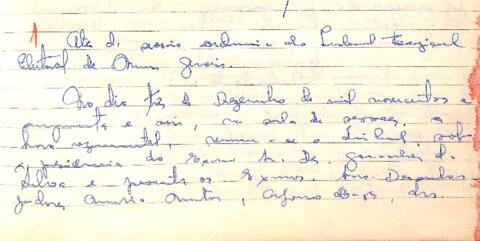 1
Ata da sessão ordinaria do Tribunal Regional
Eleitoral de Minas Gerais.
Ao dia tres de Dezembro de mil novecentos e
cinquenta e seis, na sala de sessões, a
hora regimental, reuniu-se o Tribunal, sob
a presidencia do Exmo Sr. Des. Gonçalves da
Silva e presentes os Exmos. Srs. Desembar-
gadores Amerio